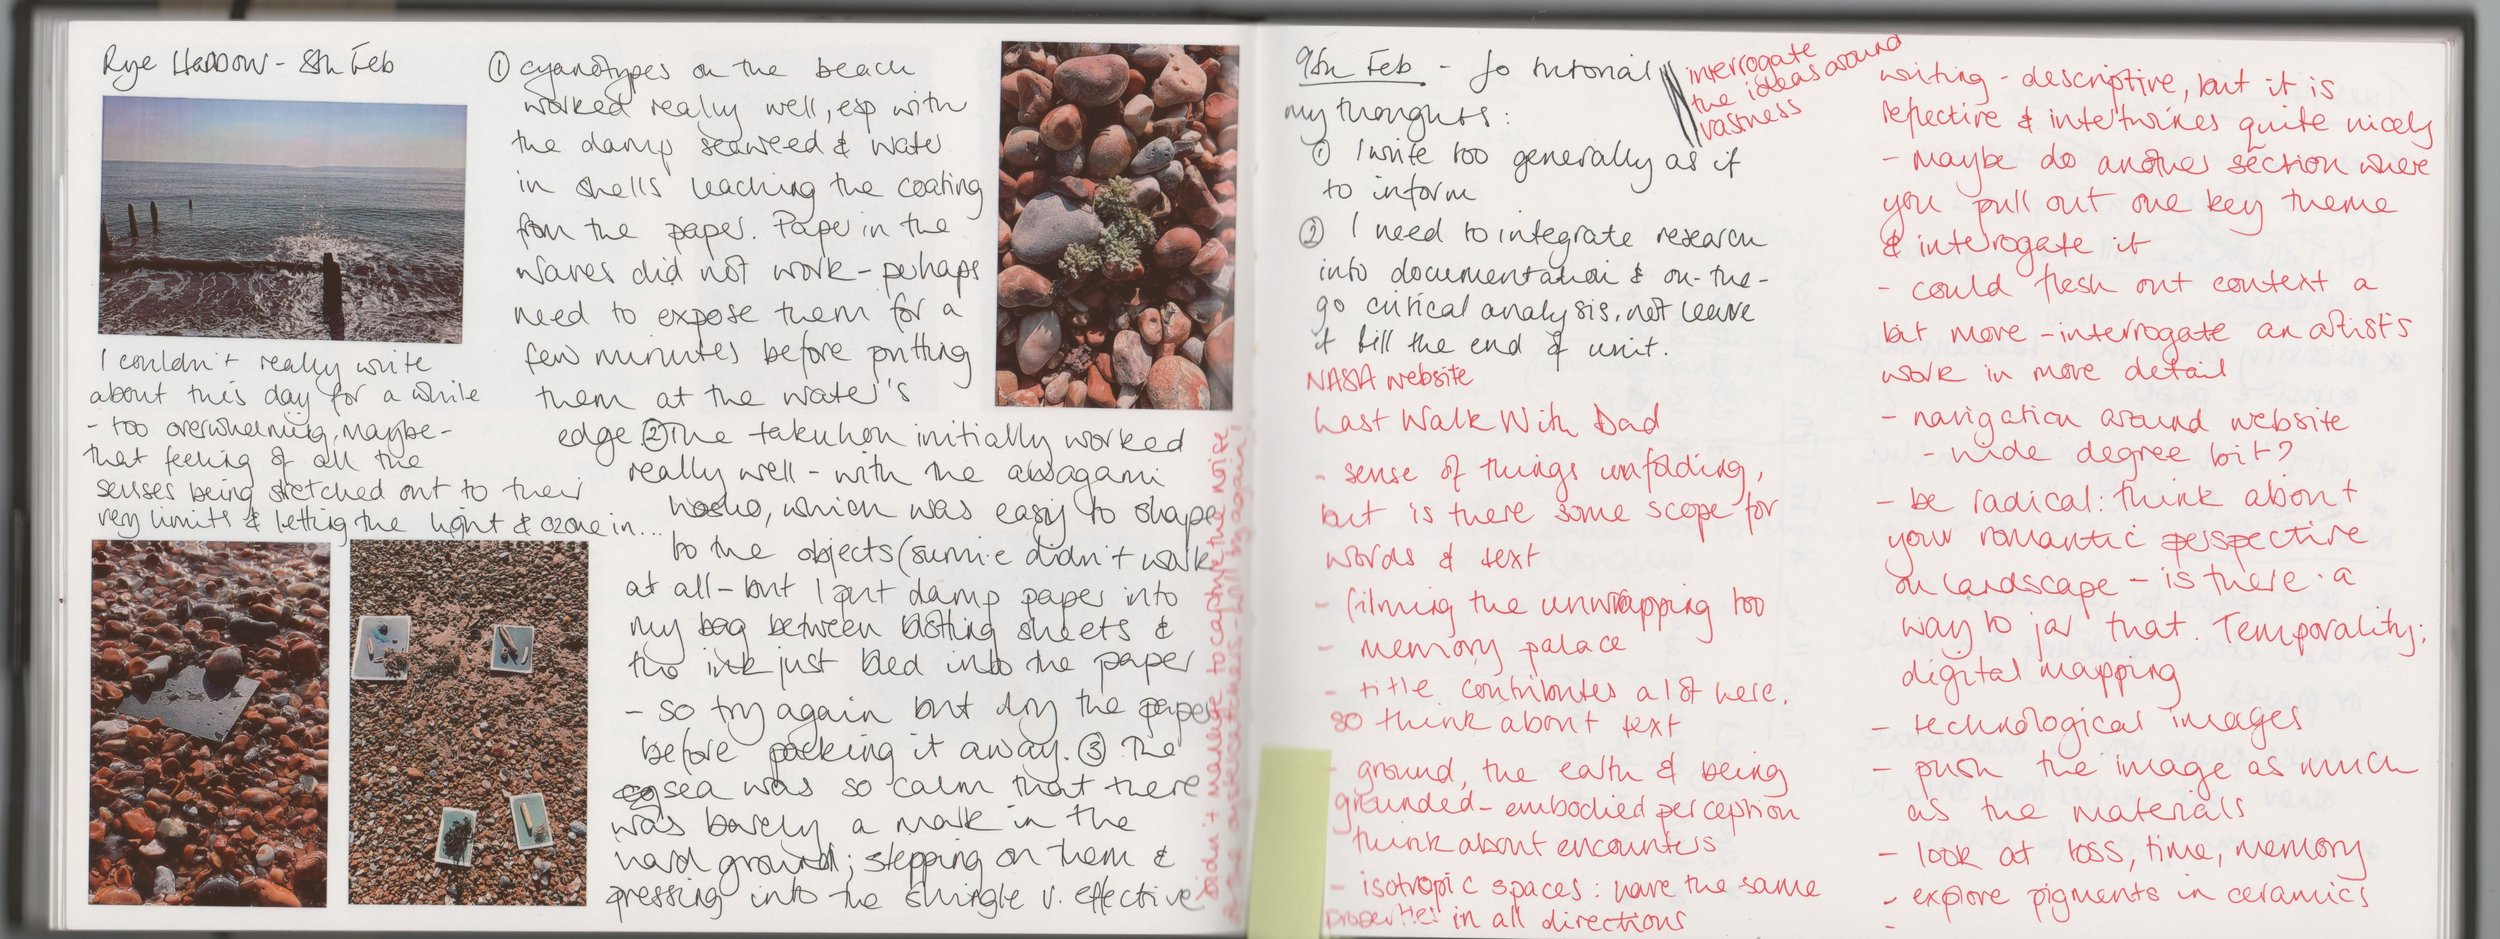 Rye Harbour - 8th Feb
I couldn't really write
about this day for a while
- too overwhelming, maybe -
that feeling of all the
senses being stretched out to their
very limits & letting the light & ozone in...
① cyanotypes on the beach
worked really well, esp with
the damp seaweed & water
in shells leaching the coating
from the paper. Paper in the
waves did not work - perhaps
need to expose them for a
few minutes before putting
them at the water's
edge. ② The takuhon initially worked
really well - with the awagami
hosho, which was easy to shape
to the objects (sumi-e didn't work
at all - but I put damp paper into
my bag between blotting sheets &
the ink just bled into the paper
- so try again but dry the paper
before packing it away. ③ The
sea was so calm that there
was barely a mark in the
hard ground; stepping on them &
pressing into the shingle v. effective
Didn't manage to capture the noise
of the oystercatchers - will try again!
9th Feb - Jo tutorial
interrogate
the ideas around
vastness
my thoughts:
① I write too generally as if
to inform
② I need to integrate research
into documentation & on-the-
go critical analysis, not leave
it till the end of unit.
NASA website
Last Walk With Dad
- sense of things unfolding,
but is there some scope for
words & text
- filming the unwrapping too
- memory palace
- title contributes a lot here.
so think about text
- ground, the earth & being
grounded - embodied perception
think about encounters
- isotropic spaces: have the same
properties in all directions
writing - descriptive, but it is
reflective & intertwines quite nicely
- maybe do another section where
you pull out one key theme
& interrogate it
- could flesh out context a
bit more - interrogate an artist's
work in more detail
- navigation around website
- wide degree bit?
- be radical: think about
your romantic perspective
on landscape - is there a
way to jar that. Temporality;
digital mapping
- technological images
- push the image as much
as the materials
- look at loss, time, memory
- explore pigments in ceramics
-